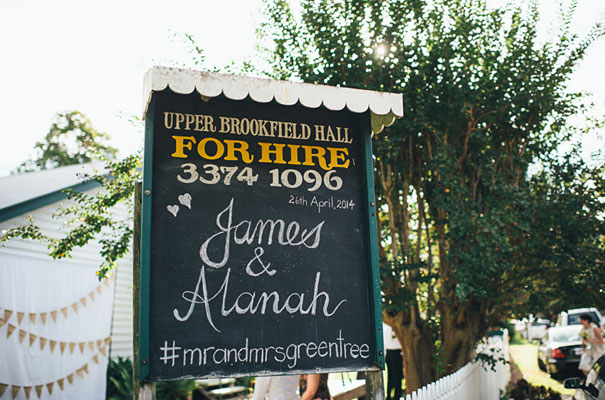 UPPER BROOKFIELD HALL
FOR HIRE
3374 1096
26th April, 2014
James
&
Alanah
#mrandmrsgreentree